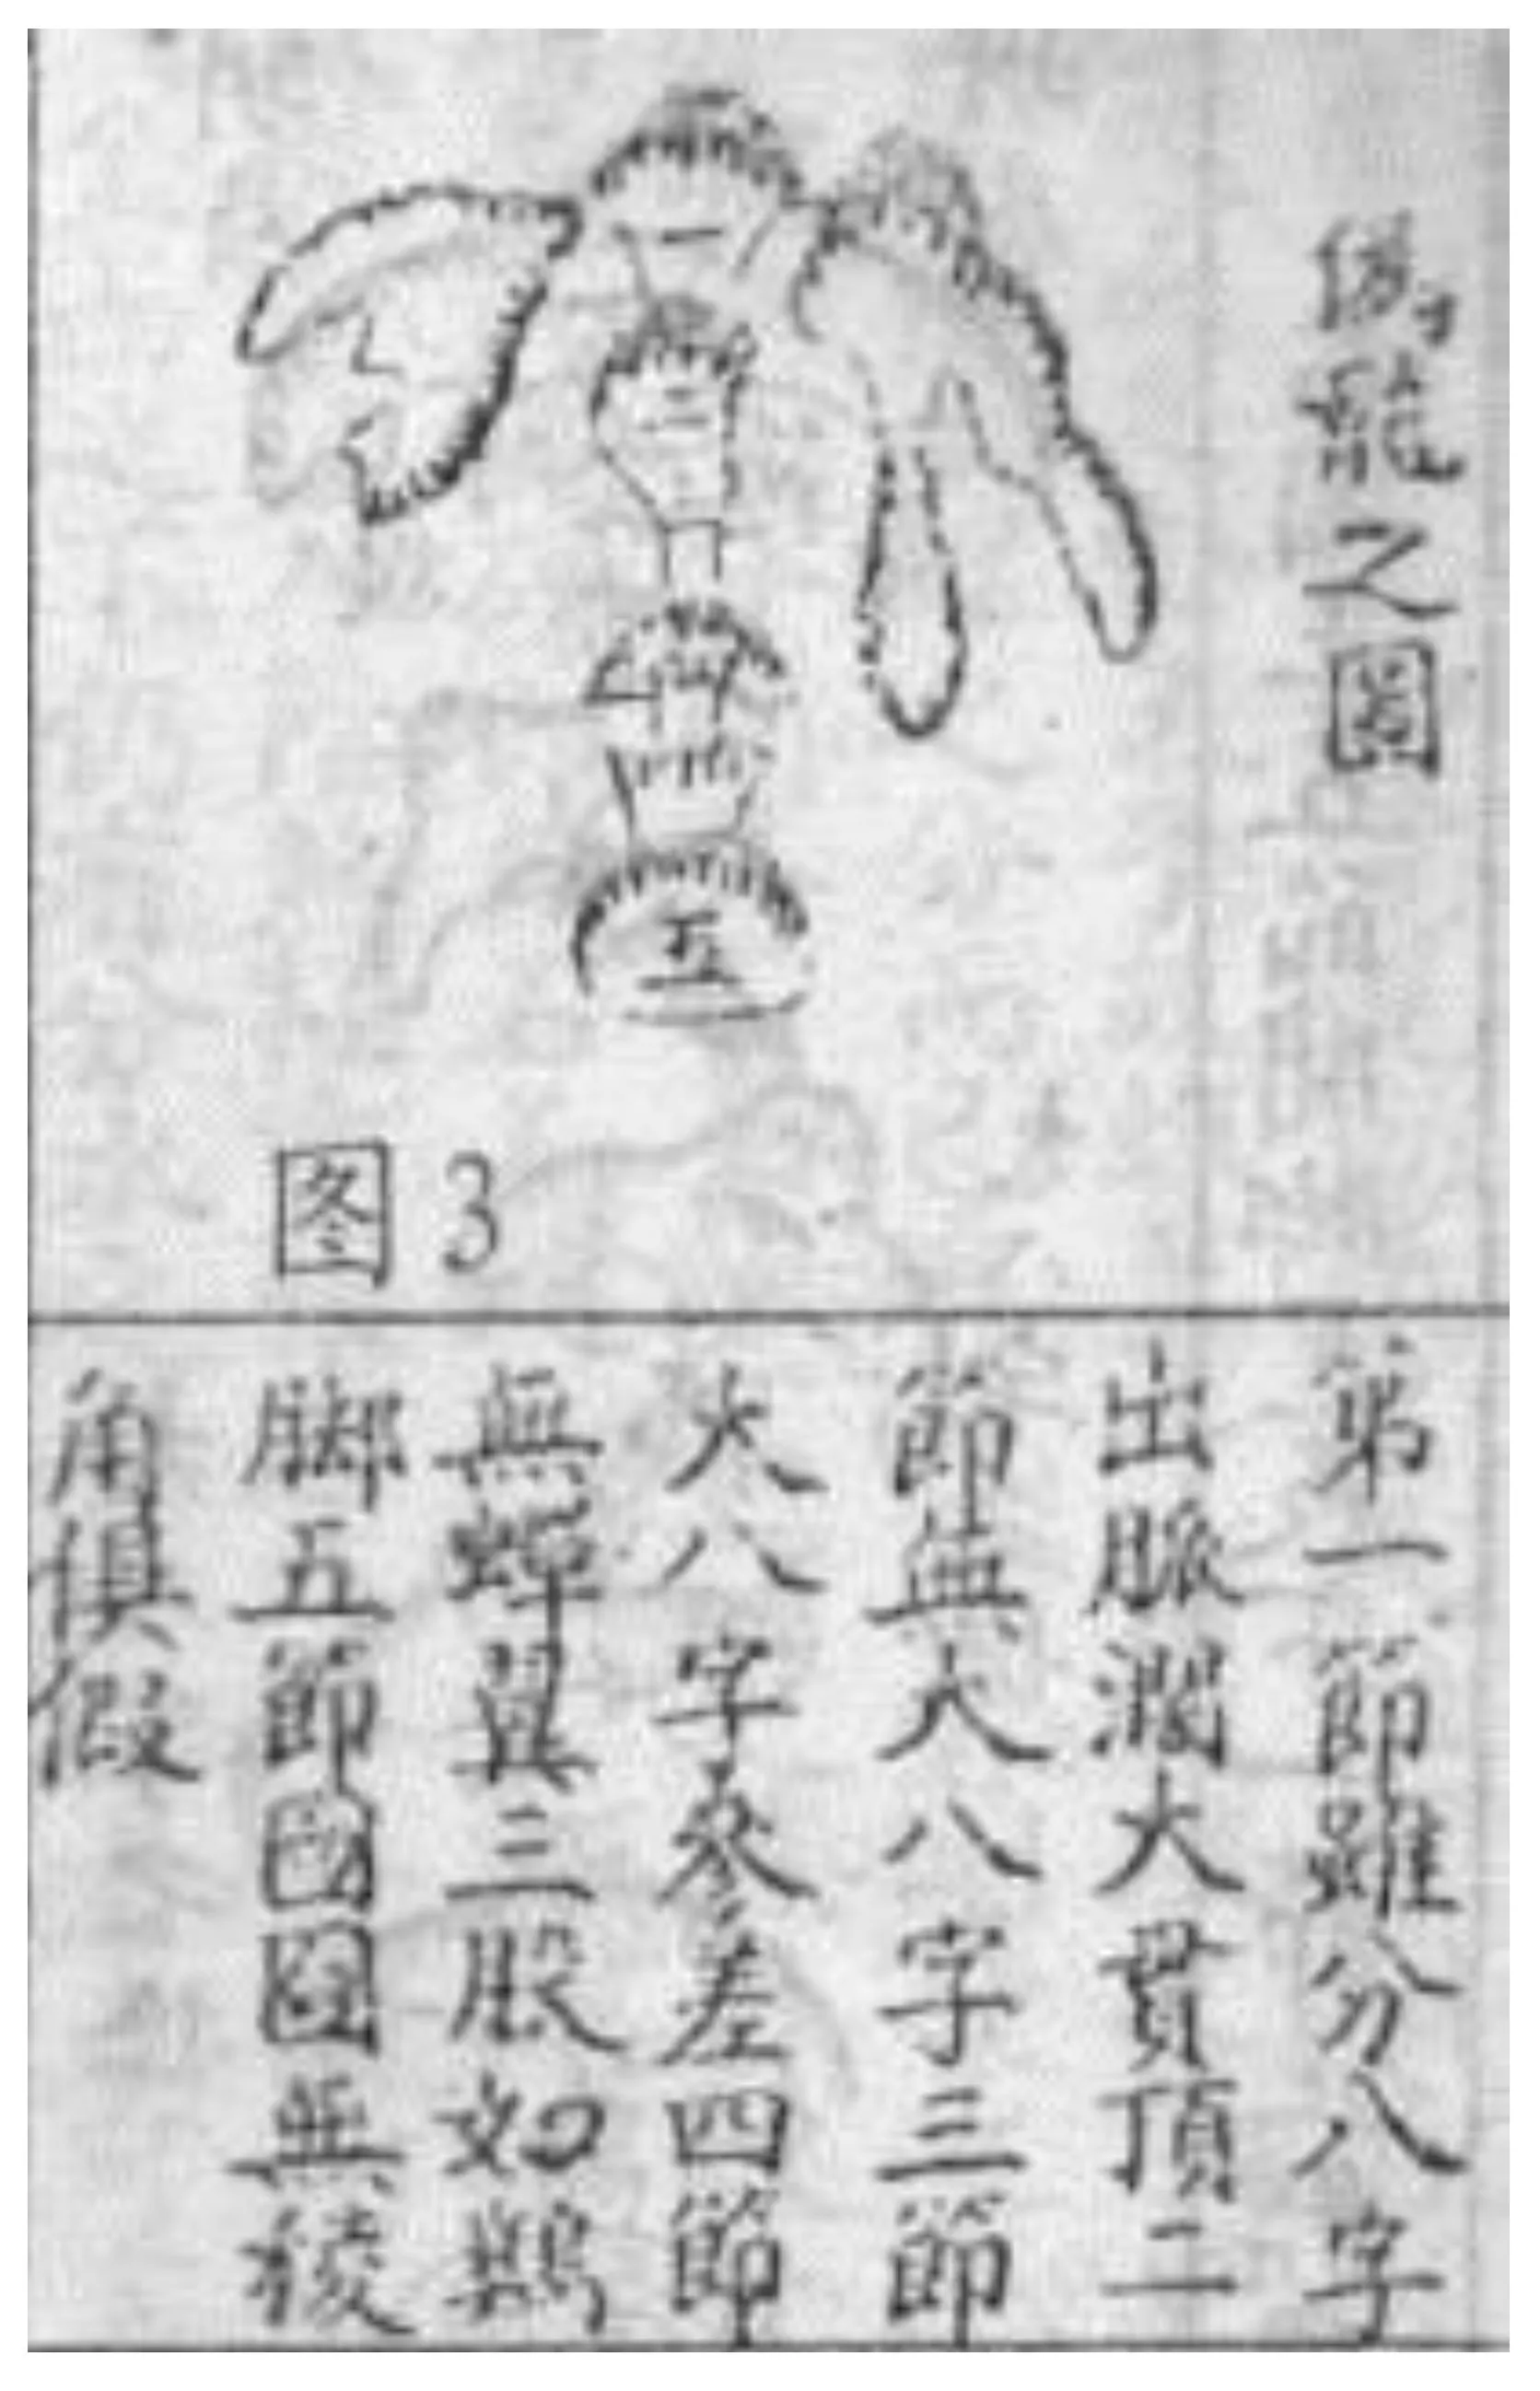 偽龍之圖
一
二
五
图3
第一節雖分八字
出脈濶大貫頂二
節無大八字三節
大八字參差四節
無蟬翼三股如鵝
脚五節囫圇無稜
角俱假